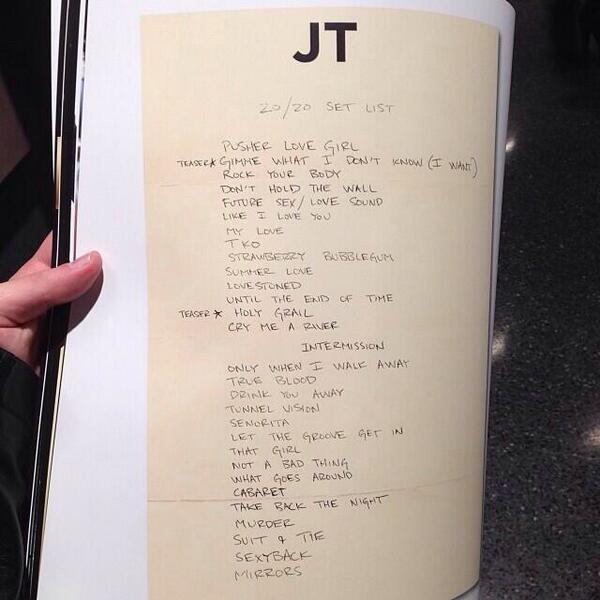 JT
20/20 SET LIST
PUSHER LOVE GIRL
TEASER* GIMME WHAT I DON'T KNOW (I WANT)
ROCK YOUR BODY
DON'T HOLD THE WALL
FUTURE SEX/ LOVE SOUND
LIKE I LOVE YOU
MY LOVE
TKO
STRAWBERRY BUBBLEGUM
SUMMER LOVE
LOVESTONED
UNTIL THE END OF TIME
TEASER * HOLY GRAIL
CRY ME A RIVER
INTERMISSION
ONLY WHEN I WALK AWAY
TRUE BLOOD
DRINK YOU AWAY
TUNNEL VISION
SENORITA
LET THE GROOVE GET IN
THAT GIRL
NOT A BAD THING
WHAT GOES AROUND
CABARET
TAKE BACK THE NIGHT
MURDER
SUIT & TIE
SEXYBACK
MIRRORS